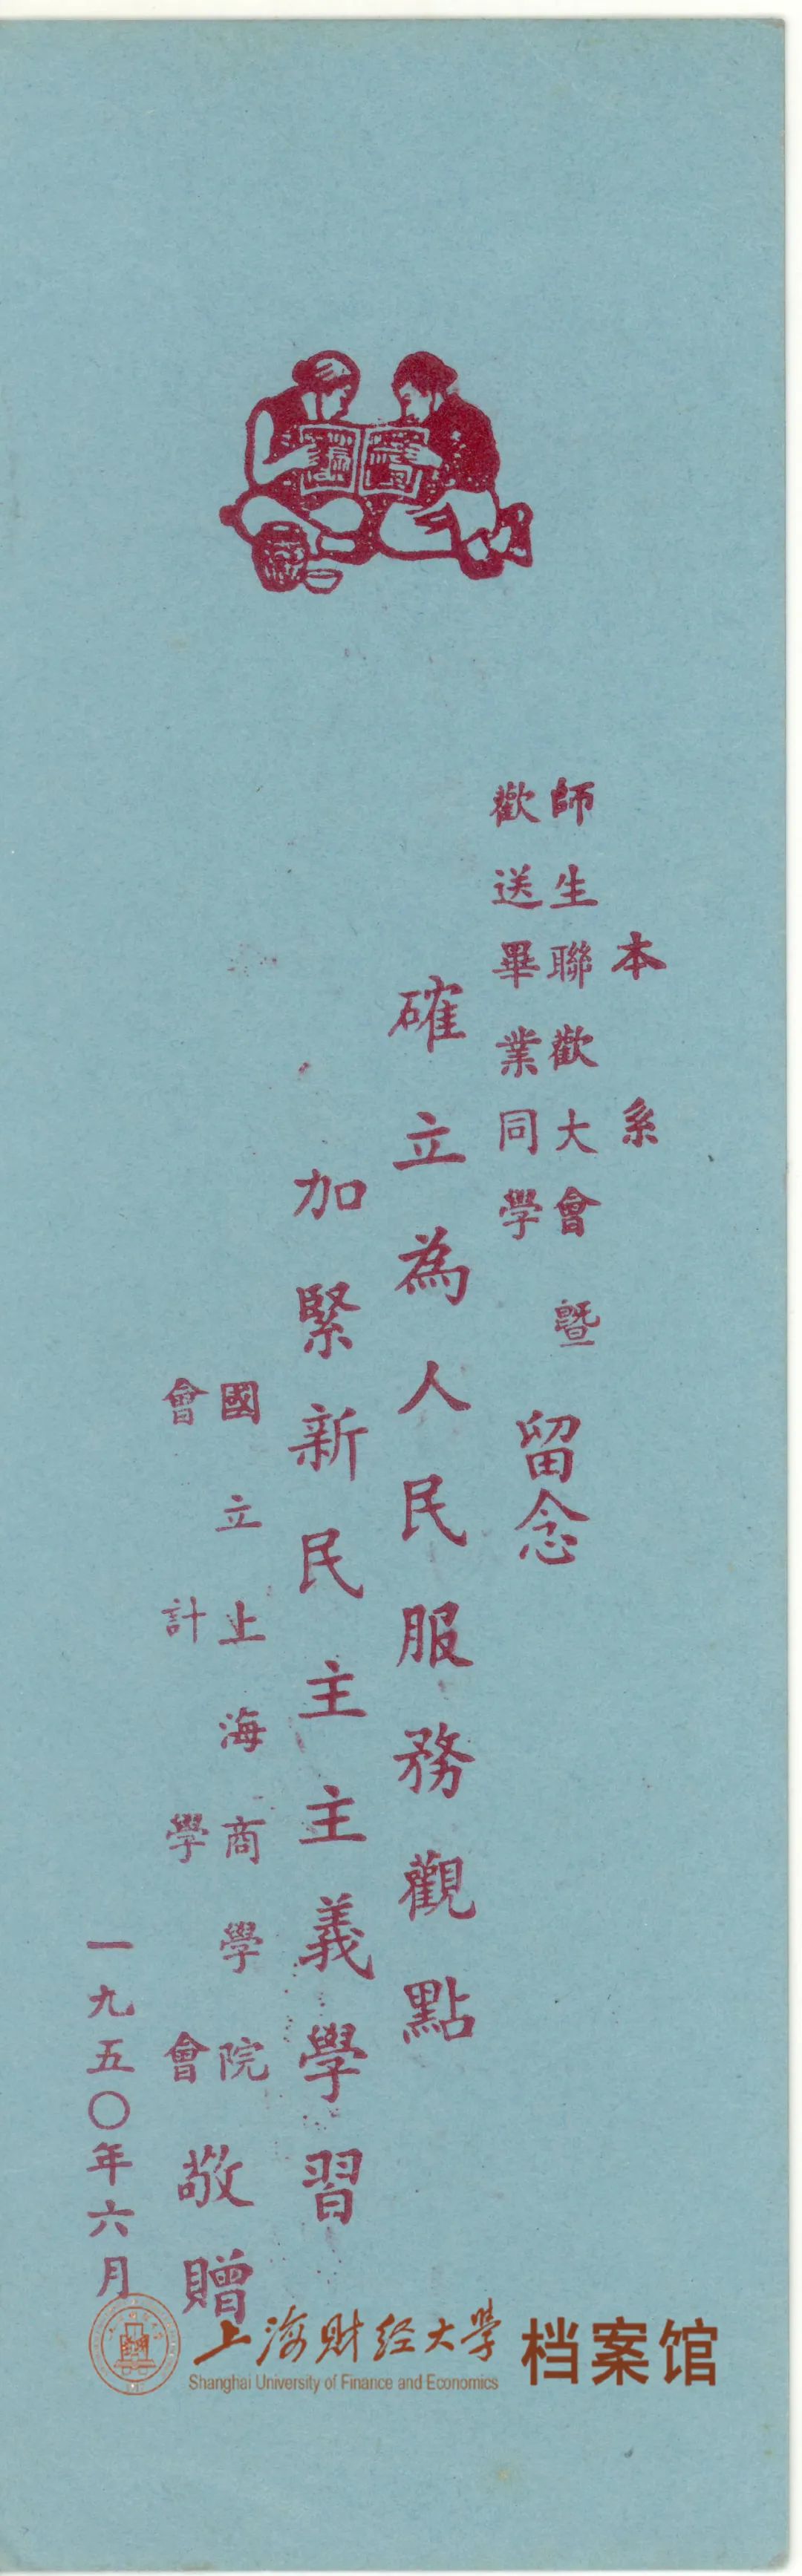 本系
師生聯歡大會暨
歡送畢業同學
留念
確立為人民服務觀點
加緊新民主主義學習
國立上海商學院
會計學會
敬贈
一九五〇年六月
上海财经大学
Shanghai University of Finance and Economics
档案馆